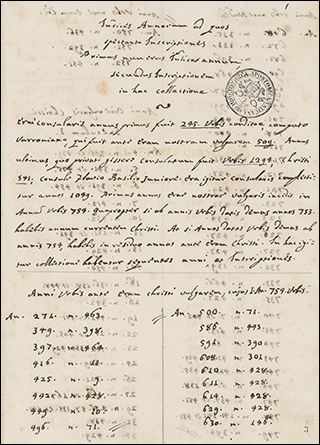 Indices Annorum ad quos
spectant Inscriptiones
Primus numerus indicat annum
secundus Inscriptionem
in hac collectione
Erae consularis annus primus fuit 245. Urbis conditae computo
Varroniano, qui fuit ante eram nostram vulgarem 509. Annus
ultimus, quo privati gessere consulatum fuit Urbis 1294. Christi
541. Consule Flavio Basilio Juniore. era igitur consularis complecti-
tur annos 1049. Primus annus erae nostrae vulgaris incidit in
Annum Urbis 754. Quapropter si ab annis Urbis datis demas annos 753.
habebis annum currentem Christi. At si Annos Urbis demas ab
annis 754. habebis in residuo annos ante eram Christi. In hac igi-
tur collectione habentur sequentes anni et Inscriptiones.
Anni Urbis ante eram Christi vulgarem, cujus I. An. 754. Urbis.
An. 271. n. 463.
349. n. 398.
397. n. 464
416. n. 11.
425. n. 9.
442. n. 428
449. n. 10.
496. n. 71.
An 500. n. 71.
586. n. 443.
594. n. 390
608. n. 301.
610. n. 428.
611. n. 428.
614. n. 428.
629. n. 428
630. n. 146.
3